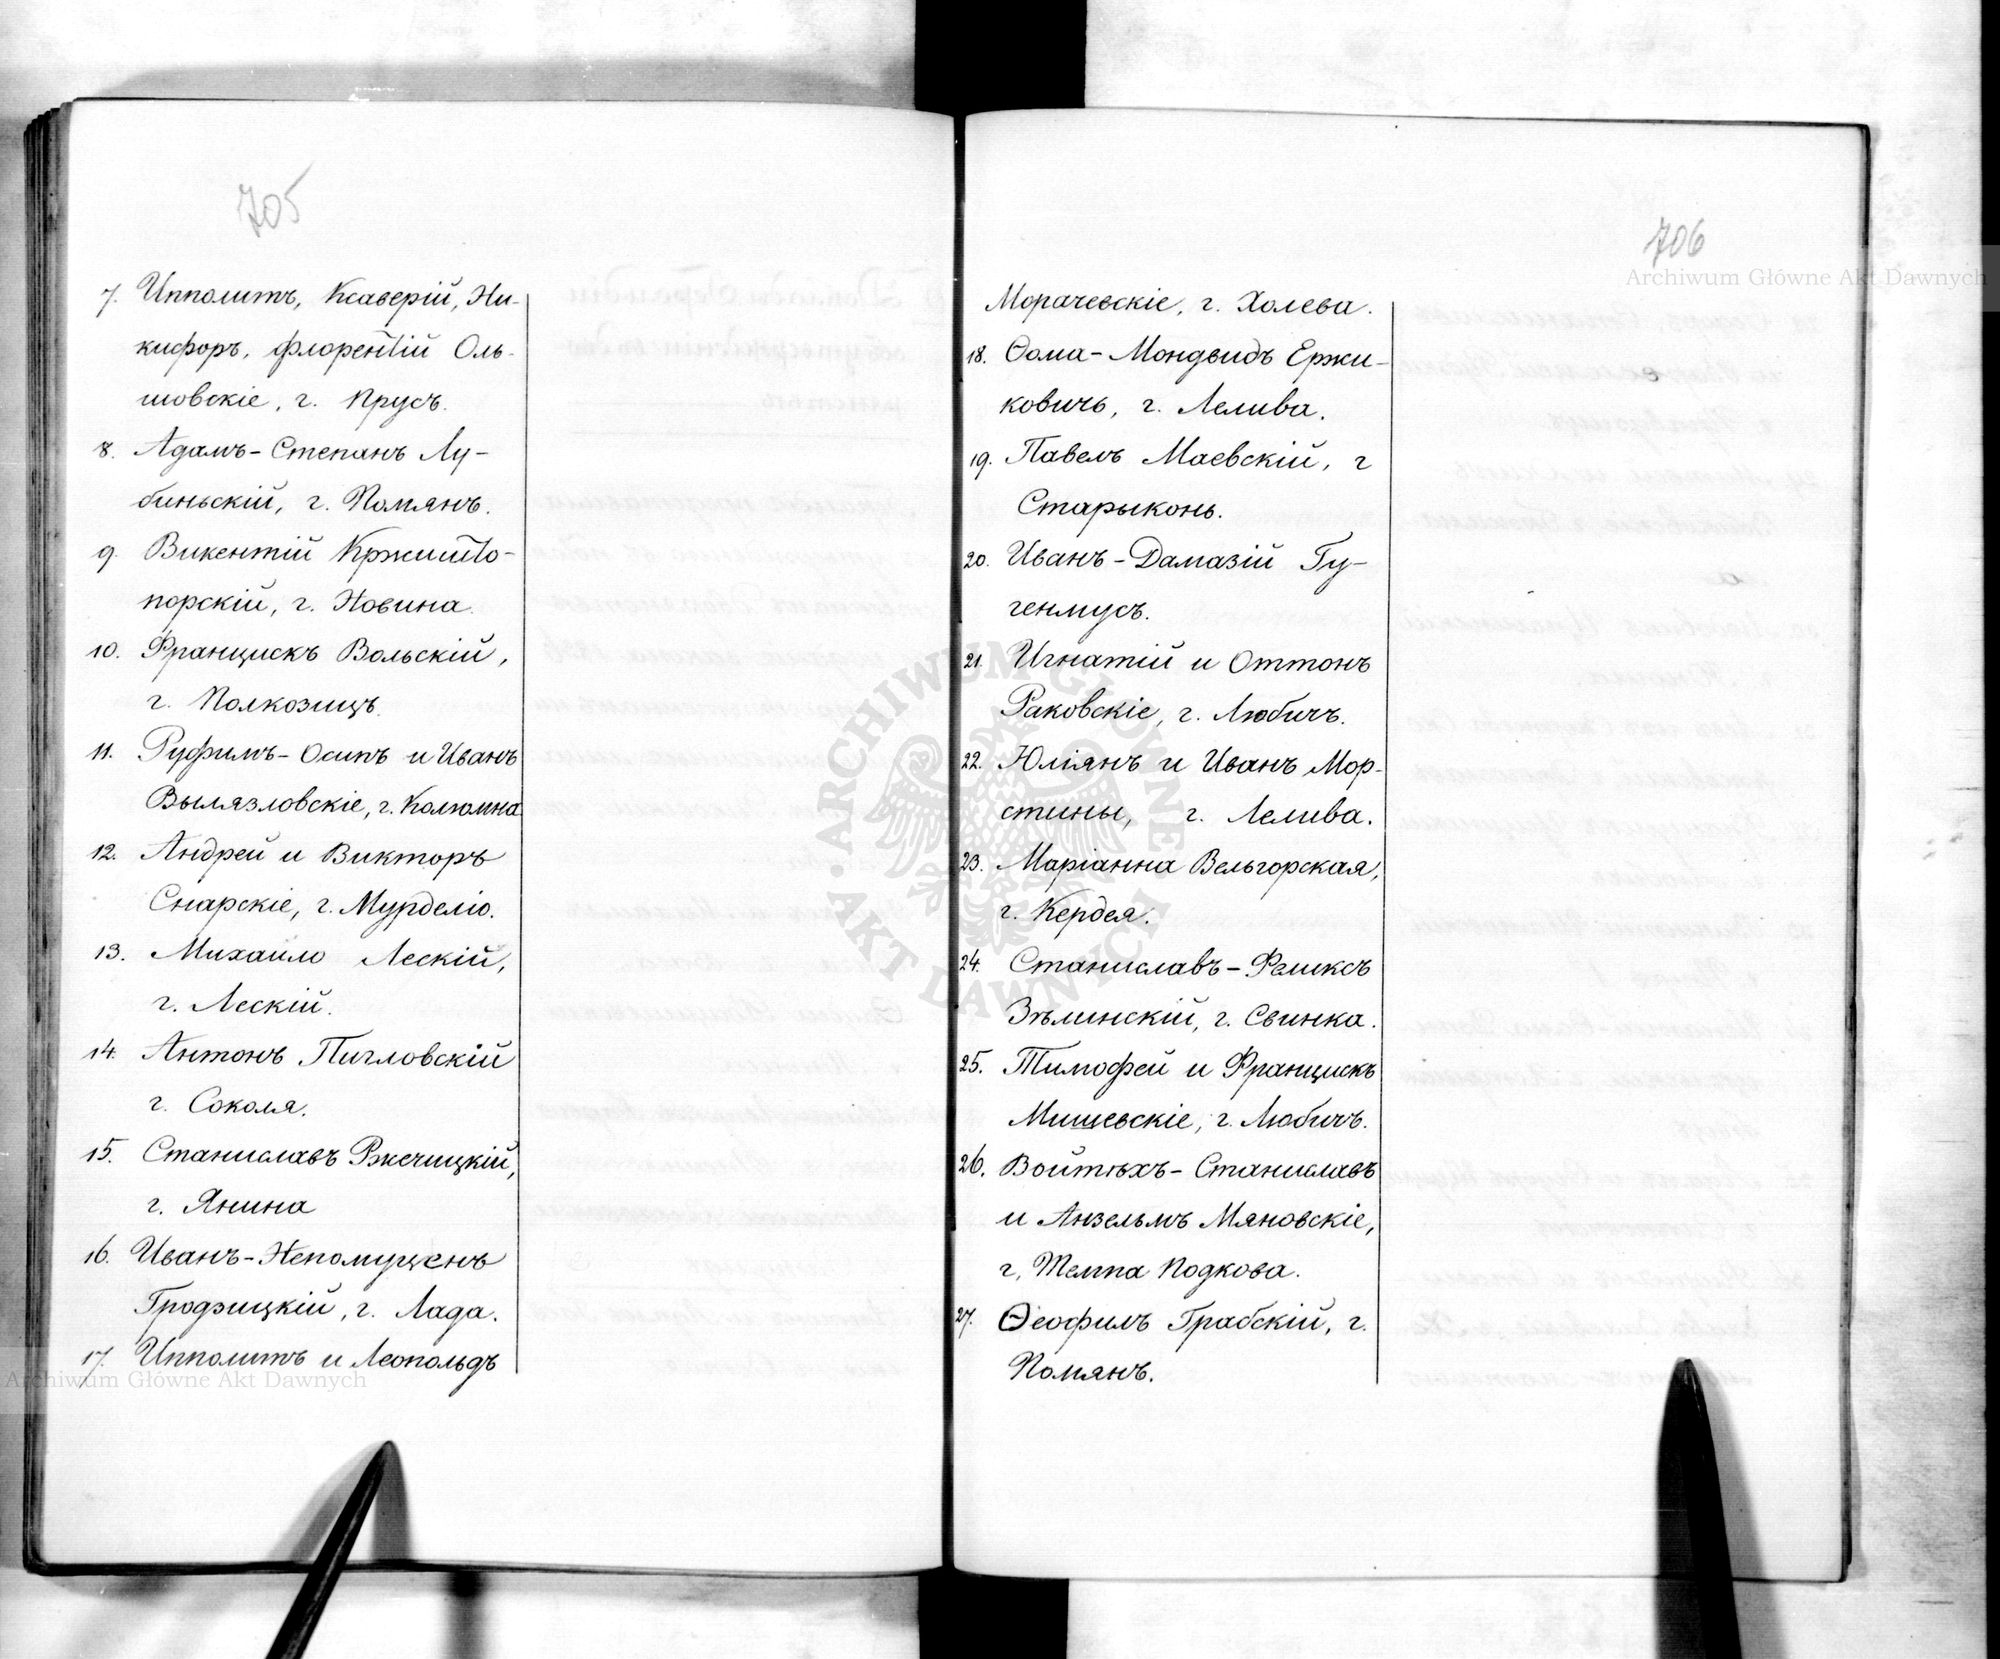 705
7. Ипполитъ, Ксаверій, Ни-
кифоръ, Флорентій Оль-
шовскіе, г. Прусъ.
8. Адамъ-Степанъ Лу-
биньскій, г. Помянъ.
9. Викентій Кржишто-
порскій, г. Новина.
10. Францискъ Вольскій,
г. Полкозицъ.
11. Руфимъ-Осипъ и Иванъ
Вылязловскіе, г. Колюмна.
12. Андрей и Викторъ
Снарскіе, г. Мурделіо.
13. Михаило Лескій,
г. Лескій.
14. Антонъ Пигловскій
г. Сокола.
15. Станиславъ Ржечицкій,
г. Янина
16. Иванъ-Непомуценъ
Гродзицкій, г. Лада.
17. Ипполитъ и Леопольдъ
Archiwum Główne Akt Dawnych
706
Archiwum Główne Akt Dawnych
Морачевскіе, г. Холева.
18. Ѳома-Мондвидъ Ержи-
ковичъ, г. Лелива.
19. Павелъ Маевскій, г
Старыконь.
20. Иванъ-Дамазій Гу-
генмусъ.
21. Игнатій и Оттонъ
Раковскіе, г. Любичъ.
22. Юліянъ и Иванъ Мор-
стины, г. Лелива.
23. Маріанна Вельгорская,
г. Кердея.
24. Станиславъ-Феликсъ
Зѣлинскій, г. Свинка.
25. Тимофей и Францискъ
Мишевскіе, г. Любичъ.
26. Войтѣхъ-Станиславъ
и Анзельмъ Мяновскіе,
г. Темпа Подкова.
27. Ѳеофилъ Грабскій, г.
Помянъ.
ARCHIWUM GŁÓWNE AKT DAWNYCH